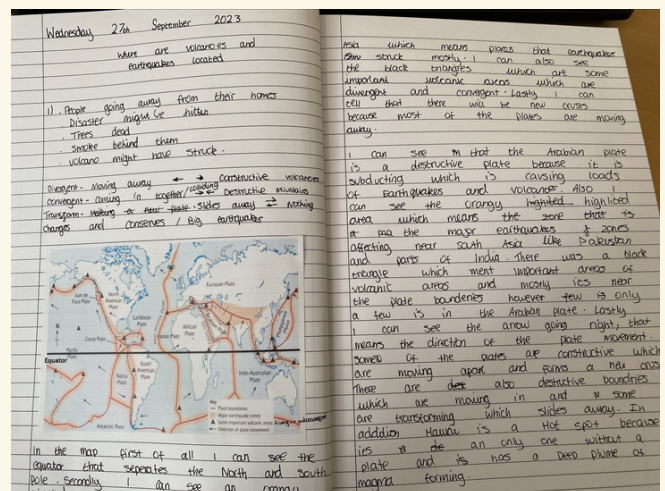 Wednesday 27th September 2023
Where are volcanoes and
earthquakes located
1) . People going away from their homes
. Disaster might be hitten
. Trees dead
. Smoke behind them
. Volcano might have struck.
Divergent - Moving away ← → Constructive volcanoes
Convergent - coming in together/ →← Destructive
Transform - slides away ⇄ Nothing
changes and conserves / Big earthquakes
Eurasian Plate
Juan de Fuca Plate
North American Plate
Caribbean Plate
Arabian Plate
Cocos Plate
African Plate
Pacific Plate
Equator
Nazca Plate
South American Plate
Indo-Australian Plate
Antarctic Plate
Key
Plate boundaries
Major earthquake zones
Some important volcanic areas
Direction of plate movement
In the map first of all I can see the
equator that seperates the North and South
Pole. Secondly I can see an orangy
Asia which means places that earthquakes
struck mostly. I can also see
the black triangles which are some
important volcanic areas which are
divergent and convergent. Lastly I can
tell that there will be new cruses
because most of the plates are moving
away.
I can see that the Arabian plate
is a destructive plate because it is
subducting which is causing loads
of Earthquakes and volcanos. Also I
can see the orangy highlited
area which means the zone that is
the major earthquakes zones
affecting near South Asia like Pakistan
and parts of India. There was a black
triangle which ment important areas of
volcanic areas and mostly its near
the plate bounderies however only
a few is in the Arabian plate. Lastly
I can see the arrow going right, that
means the direction of the plate movement.
Some of the plates are constructive which
are moving apart and forms a new crus
There are also destructive boundries
which are moving in and some
are transforming which slides away. In
addition Hawaii is a Hot spot because
its an only one without a
plate and is has a Deep plume of
magma forming.